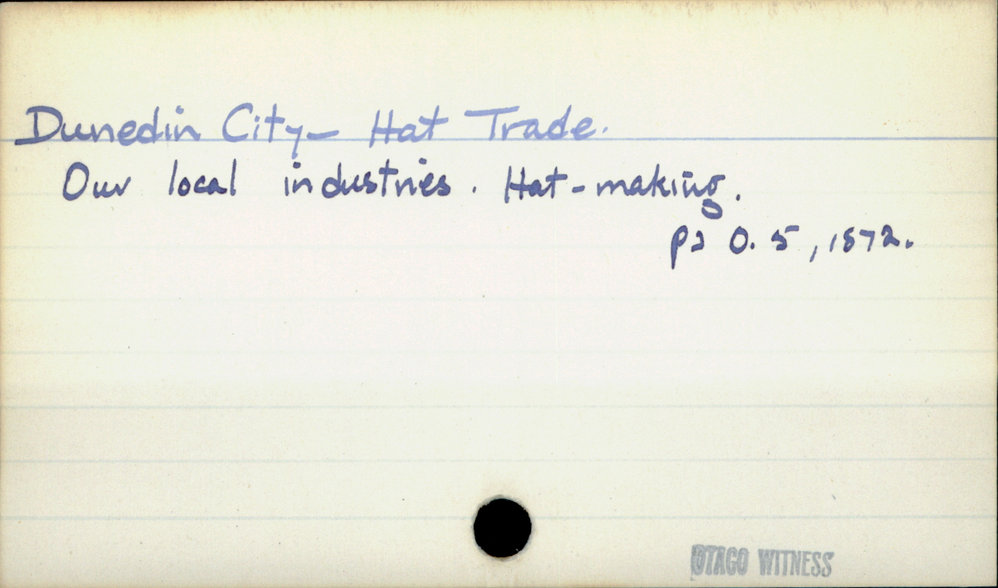 Dunedin City - Hat Trade.
Our local industries. Hat-making.
p2 O. 5, 1872.
OTAGO WITNESS